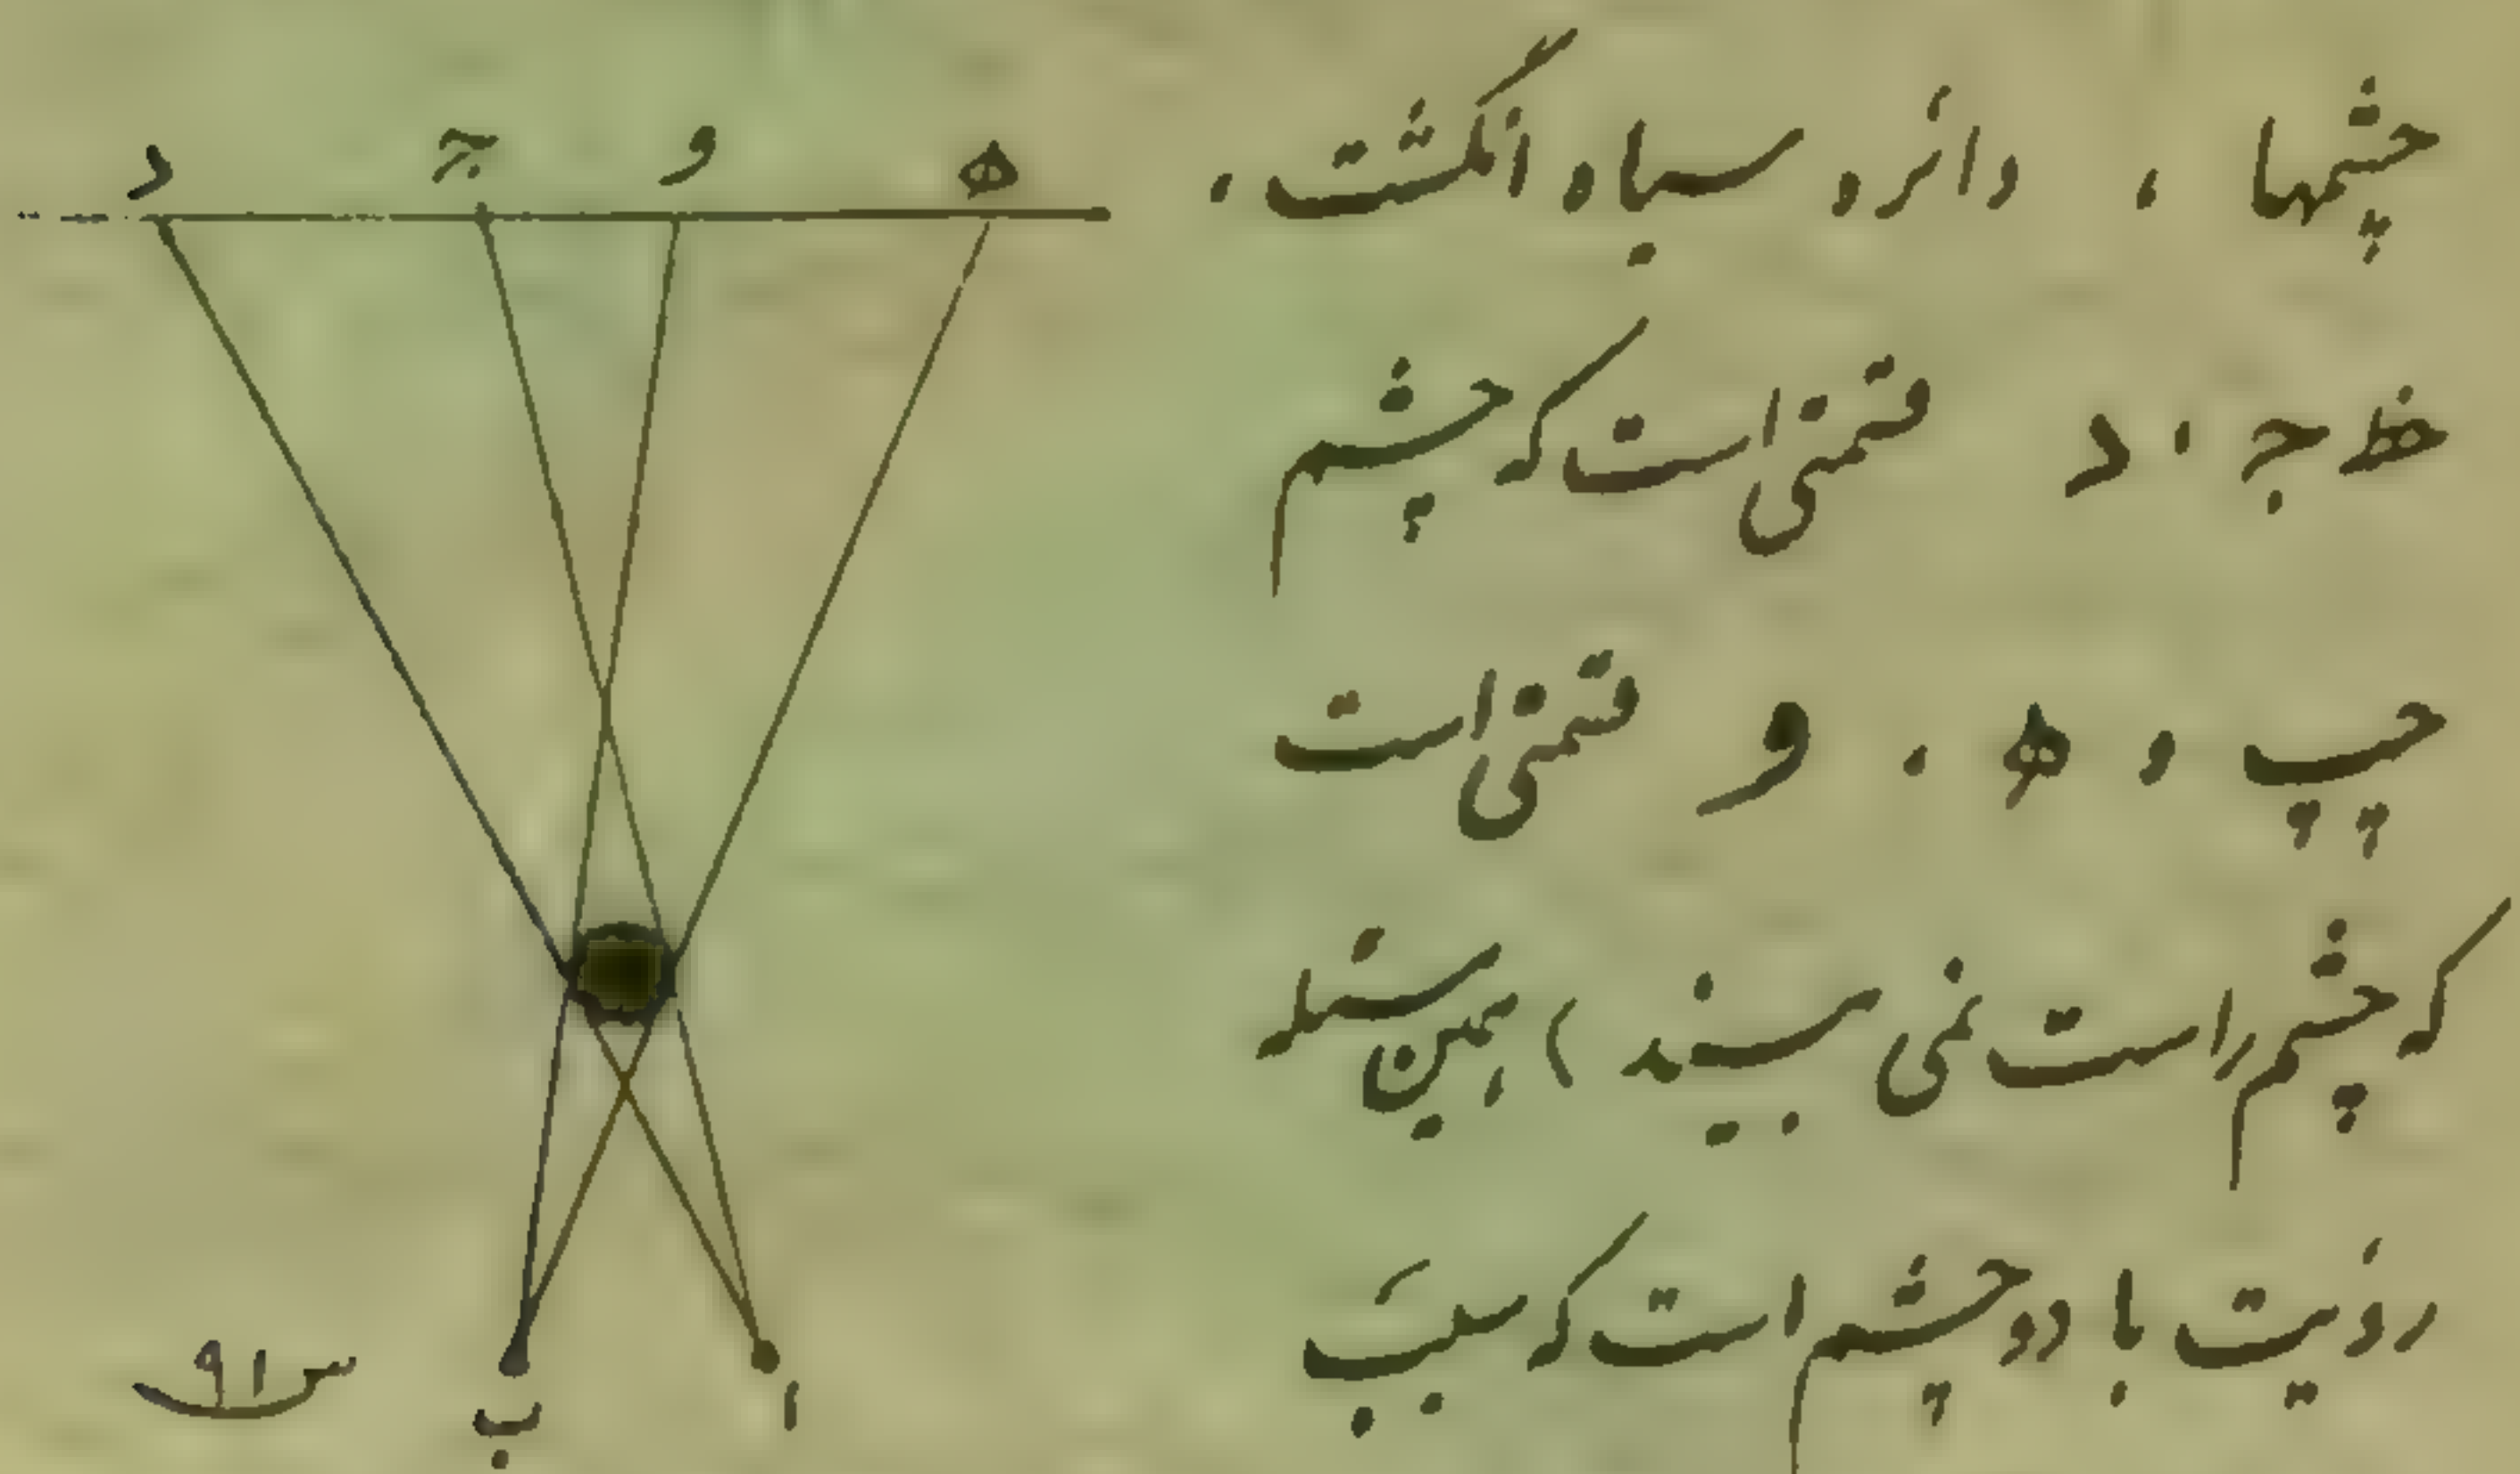 چشمها ، دائره سیاه انگشت ،
خط ج ، د قسمتی است که چشم
چپ ، ه ، و قسمتی است
که چشم راست نمی بیند ) همین مسئله
رؤیت با دو چشم است که سبب
د ج و ه
ا
ب
س ۹۱